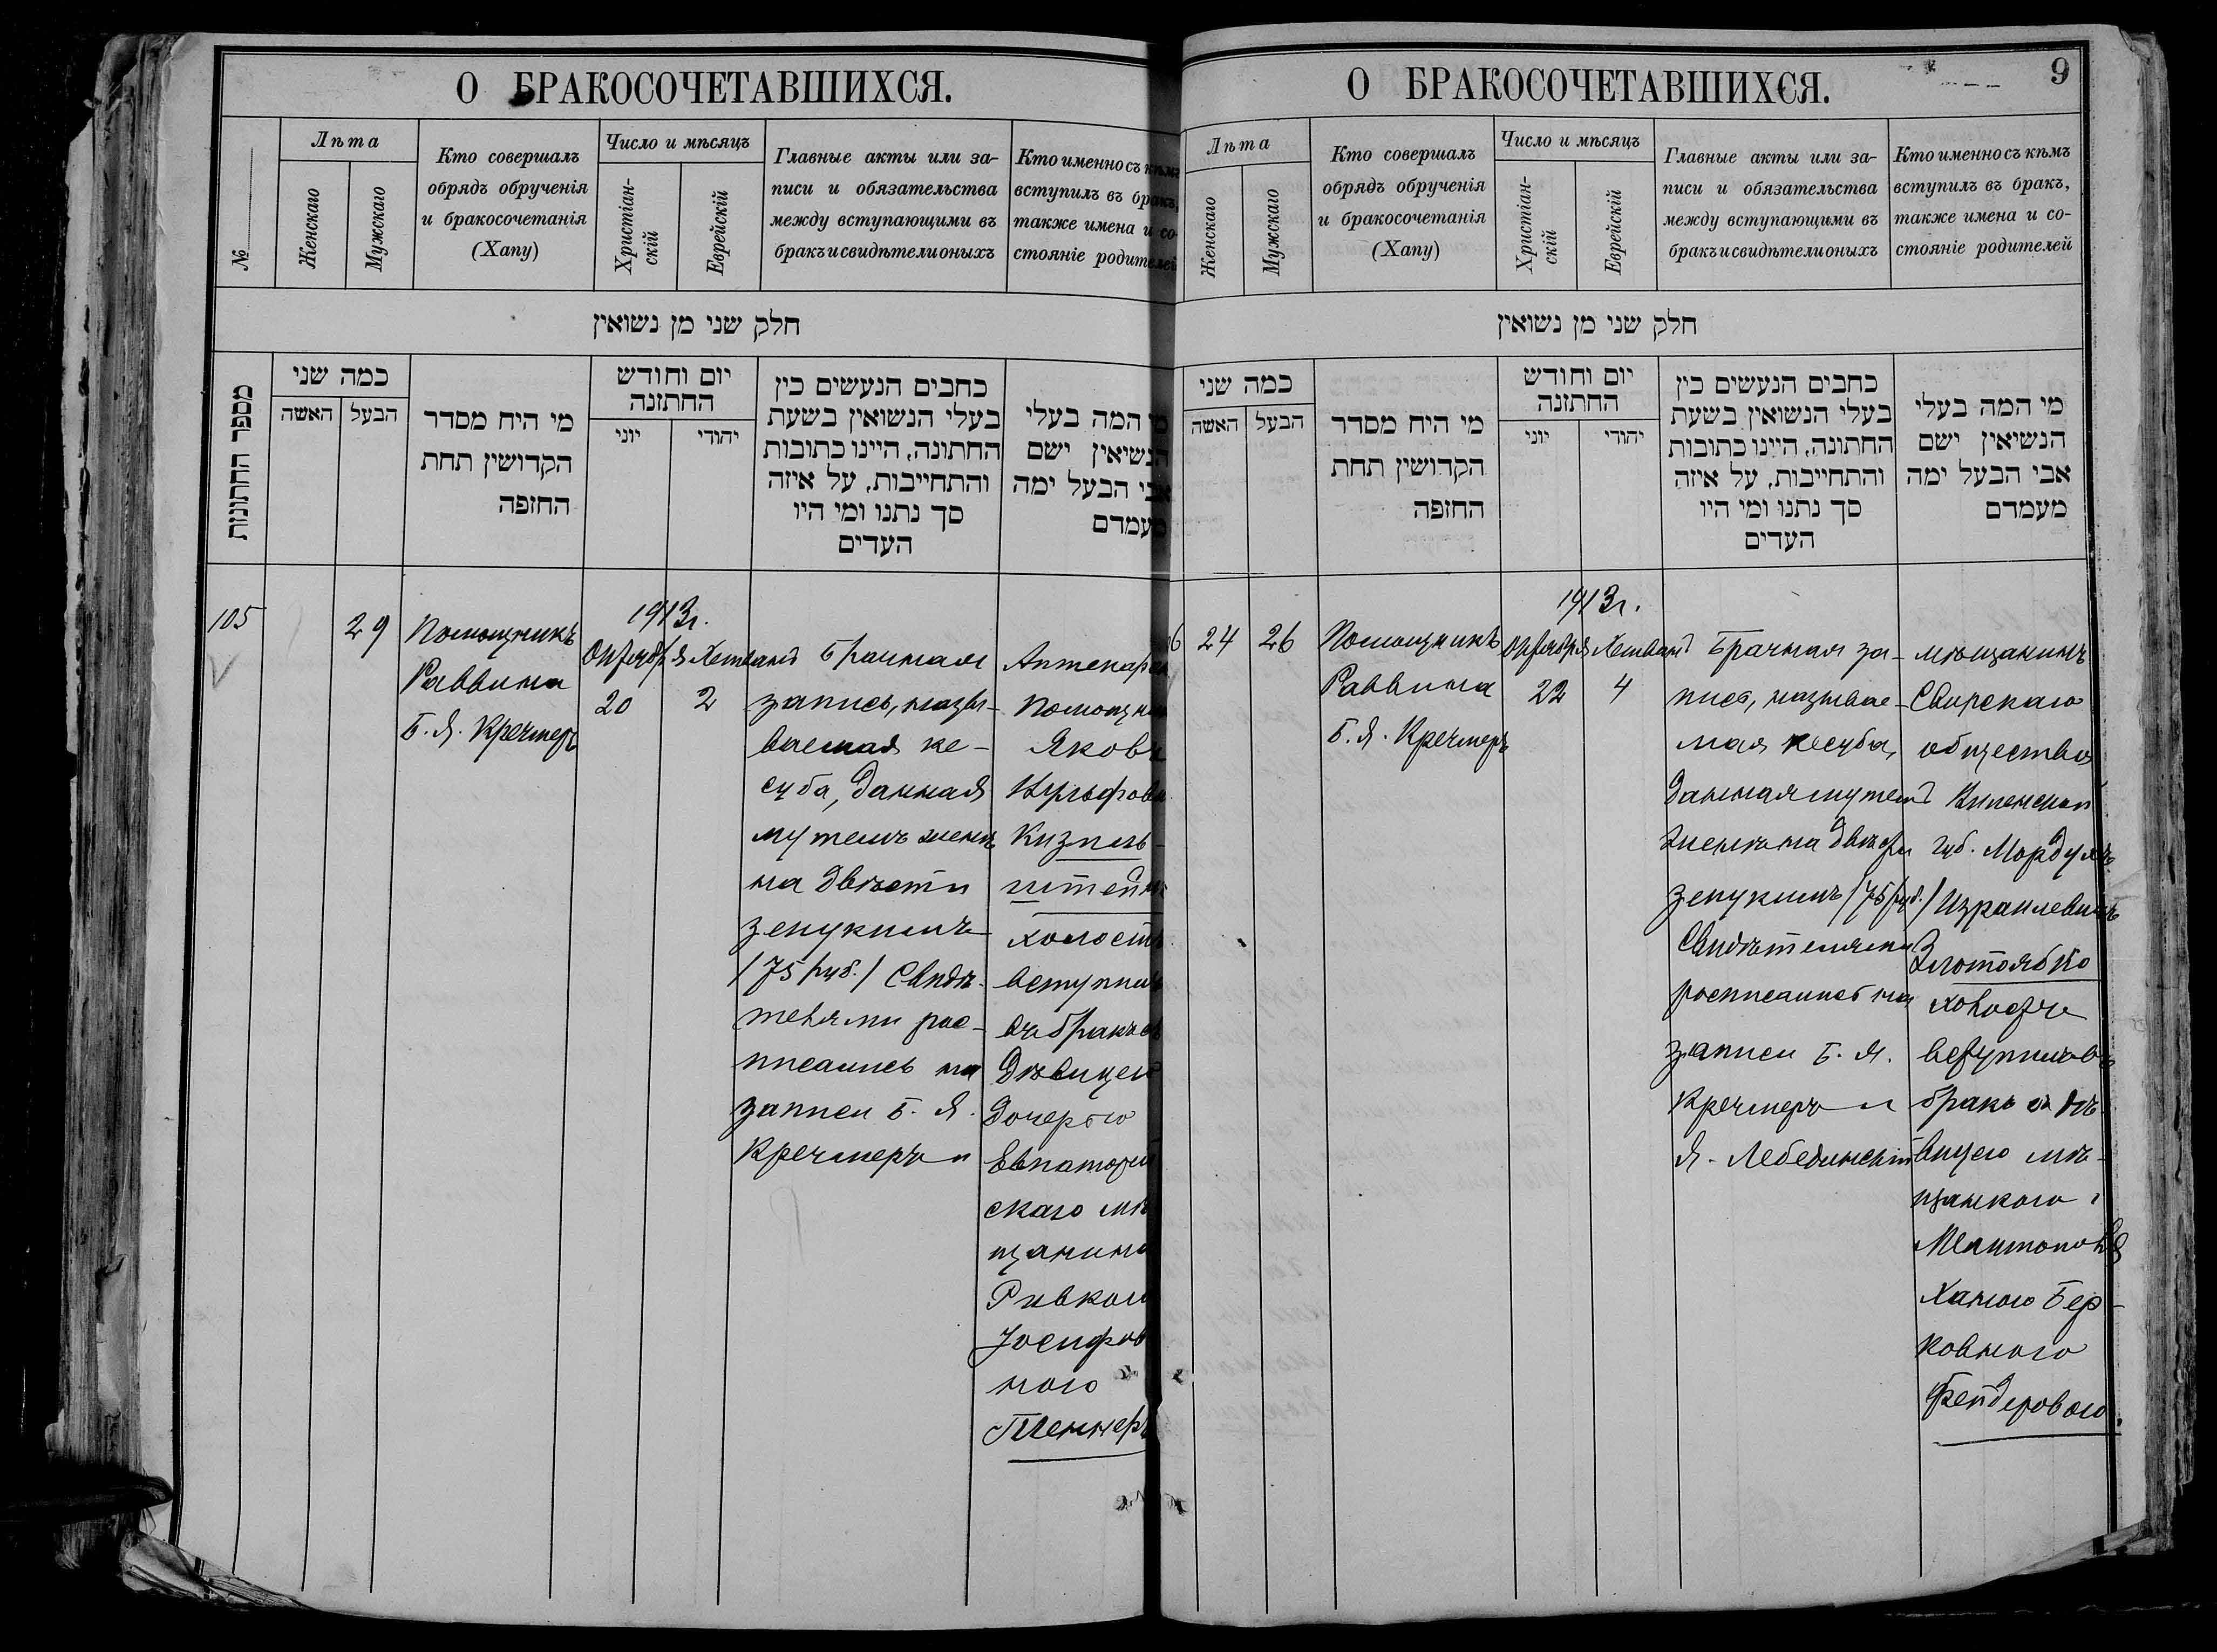 О БРАКОСОЧЕТАВШИХСЯ.
№
Лѣта
Женскаго
Мужскаго
Кто совершалъ
обрядъ обрученія
и бракосочетанія
(Хапу)
Число и мѣсяцъ
Христіан-
скій
Еврейскій
Главные акты или за-
писи и обязательства
между вступающими въ
бракъ и свидѣтели оныхъ
Кто именно съ кѣмъ
вступилъ въ бракъ,
также имена и со-
стояніе родителей
חלק שני מן נשואין
מספר החתונות
כמה שני
האשה
הבעל
מי היח מסדר
הקדושין תחת
החזפה
יום וחודש
החתזנה
יוני
יהודי
כחבים הנעשים כין
בעלי הנשואין בשעת
החתונה, היינו כתובות
והתחייבות, על איזה
סך נתנו ומי היו
העדים
מי המה בעלי
הנשיאין ישם
אבי הבעל ימה
מעמדם
105
29
Помощникъ
Раввина
Б. Я. Кречмеръ
1913г.
Октября
20
Хешванъ
2
Брачная
запись, назы-
ваемая ке-
суба, данная
мужемъ женѣ
на двѣсти
зекукимъ
/75 руб./ Свидѣ-
телями рос-
писались на
записи Б. Я.
Кречмеръ и
Аптекарск
Помощник
Яковъ
Вульфов
Кизель-
штейнъ
холостъ
вступилъ
въ бракъ съ
Дѣвицею
Дочерью
Евпаторій
скаго мѣ
щанина
Ривкою
Іосифов
ною
Теннеръ
О БРАКОСОЧЕТАВШИХСЯ.
9
Лѣта
Женскаго
Мужскаго
Кто совершалъ
обрядъ обрученія
и бракосочетанія
(Хапу)
Число и мѣсяцъ
Христіан-
скій
Еврейскій
Главные акты или за-
писи и обязательства
между вступающими въ
бракъ и свидѣтели оныхъ
Кто именно съ кѣмъ
вступилъ въ бракъ,
также имена и со-
стояніе родителей
חלק שני מן נשואין
כמה שני
האשה
הבעל
מי היח מסדר
הקדושין תחת
החזפה
יום וחודש
החתזנה
יוני
יהודי
כחבים הנעשים כין
בעלי הנשואין בשעת
החתונה, היינו כתובות
והתחייבות, על איזה
סך נתנו ומי היו
העדים
מי המה בעלי
הנשיאין ישם
אבי הבעל ימה
מעמדם
6
24
26
Помощникъ
Раввина
Б. Я. Кречмеръ
1913г.
Октября
22
Хешванъ
4
Брачная за-
пись, называе-
мая кесуба,
данная мужемъ
женѣ на двѣсти
зекукимъ /75 руб./
Свидѣтелями
росписались на
записи Б. Я.
Кречмеръ и
Я. Лебединскій
мѣщанинъ
Свирскаго
общества
Виленской
губ. Мордухъ
Израилевичъ
Злотоябко
холостъ
вступилъ въ
бракъ съ дѣ-
вицею мѣ-
щанкою
Мелитополя
Ханою Бер-
ковною
Фейдеровою.